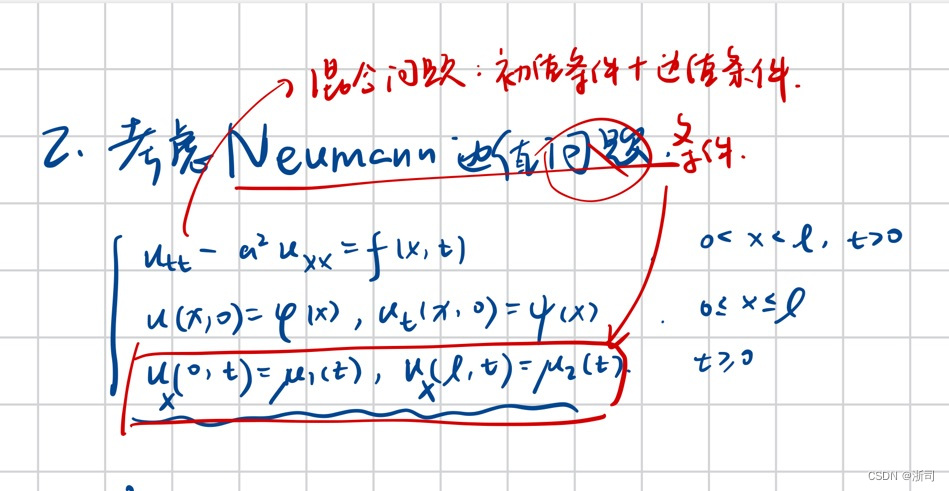 混合问题：初值条件+边值条件.
2. 考虑Neumann边值问题. 条件.
u_tt - a²u_xx = f(x,t) 0<x<l, t>0
u(x,0)=φ(x), u_t(x,0)=ψ(x). 0≤x≤l
u_x(0,t)=μ₁(t), u_x(l,t)=μ₂(t). t≥0
CSDN @浙司